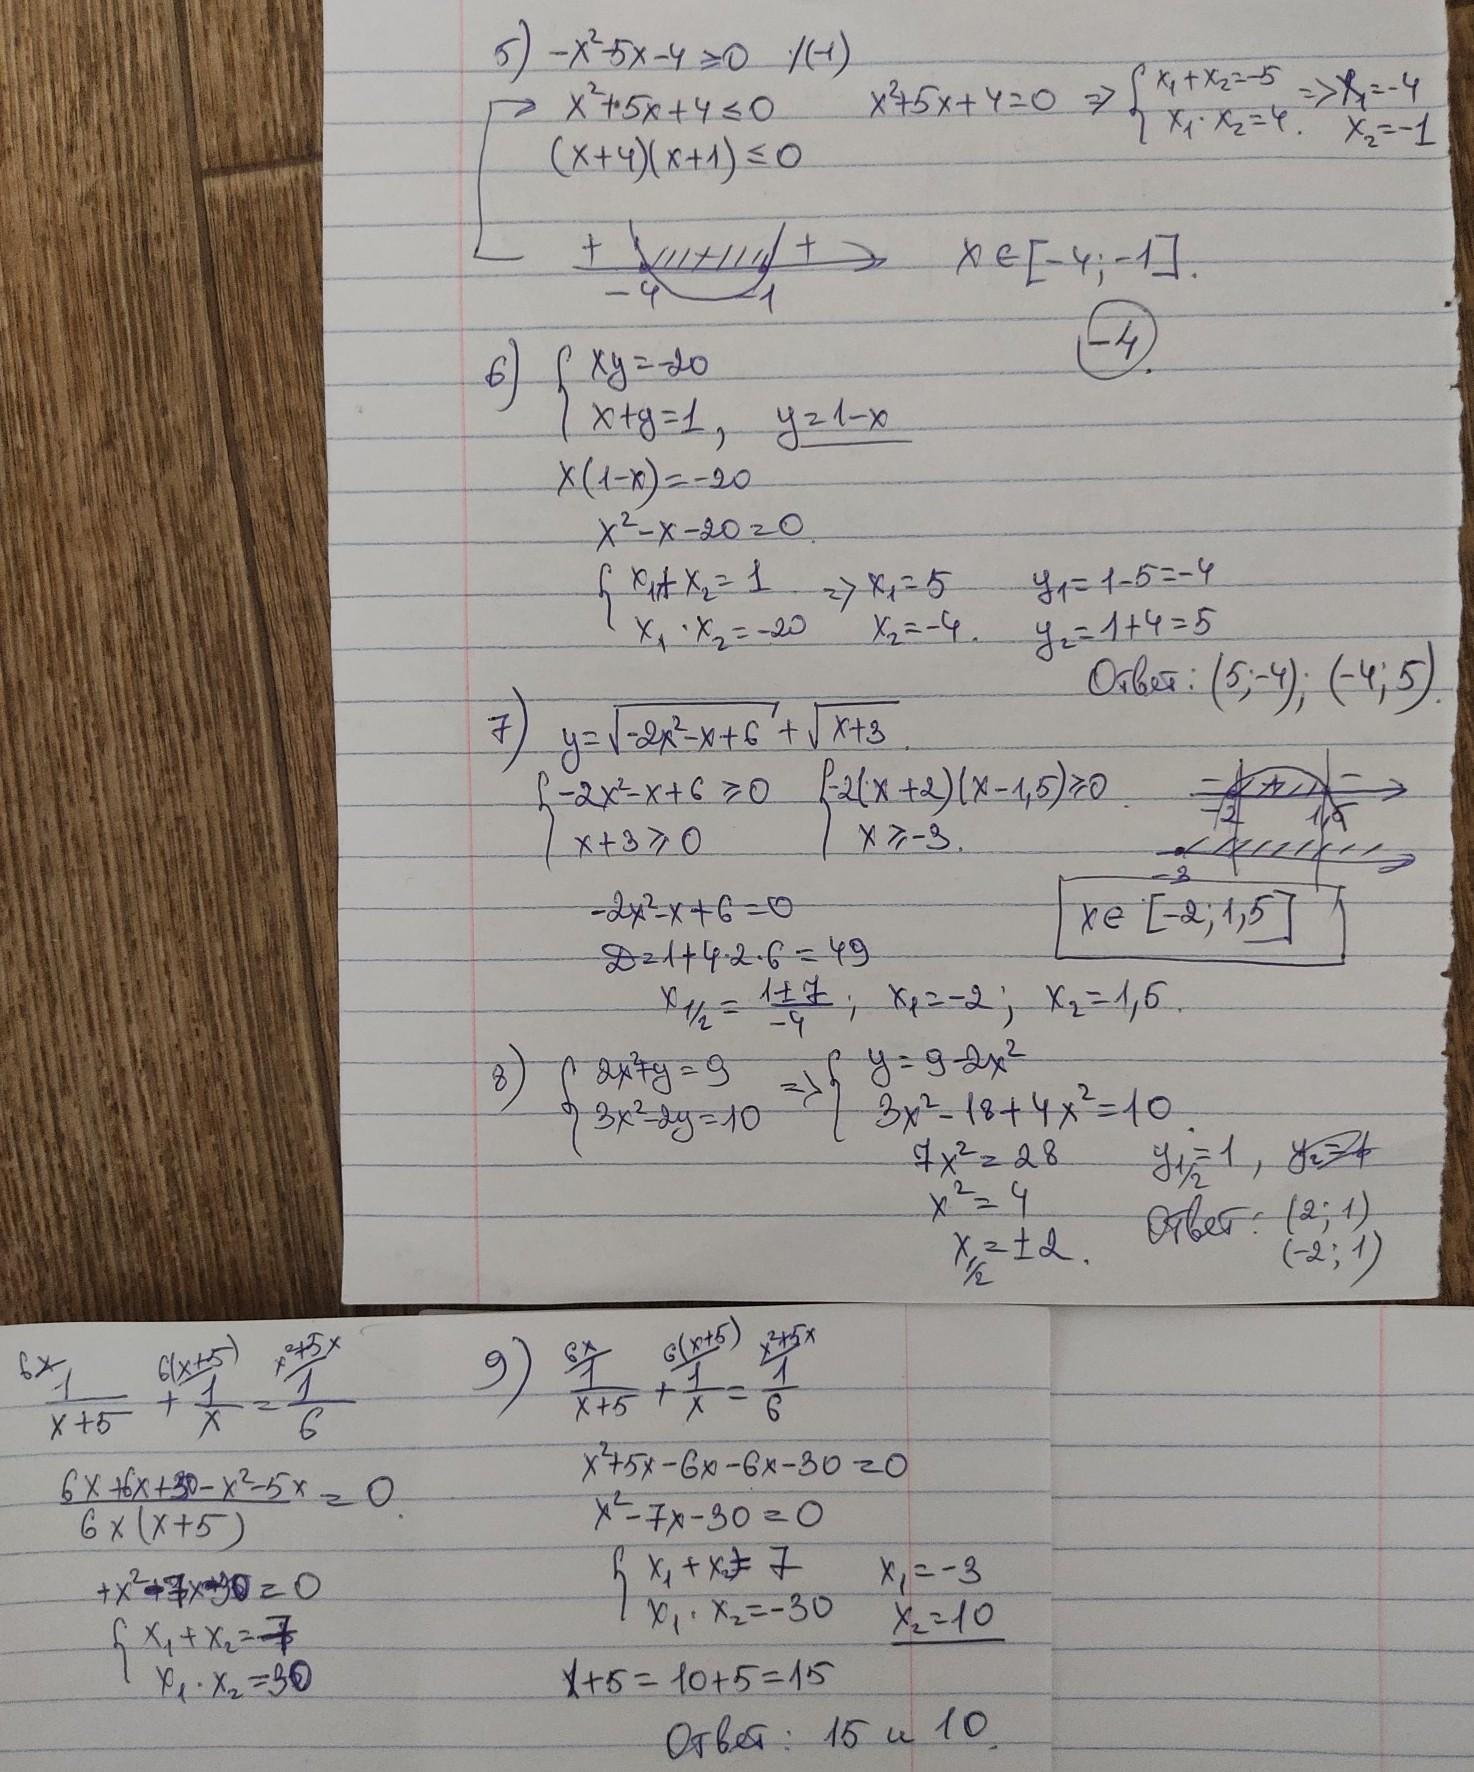 5) -x²-5x-4≥0 /·(-1)
x²+5x+4≤0 x²+5x+4=0 => { x₁+x₂=-5 => x₁=-4
x₁·x₂=4. x₂=-1
(x+4)(x+1)≤0
+ - +
-4 -1
x∈[-4;-1].
-4.
6) { xy=-20
x+y=1, y=1-x
x(1-x)=-20
x²-x-20=0.
{ x₁+x₂=1 => x₁=5 y₁=1-5=-4
x₁·x₂=-20 x₂=-4. y₂=1+4=5
Ответ: (5;-4); (-4;5).
7) y=√(-2x²-x+6) + √(x+3).
{ -2x²-x+6≥0 { -2(x+2)(x-1,5)≥0.
x+3≥0 x≥-3.
- + -
-2 1,5
-3
-2x²-x+6=0
x∈[-2;1,5]
D=1+4·2·6=49
x₁/₂=(1±7)/(-4); x₁=-2; x₂=1,5.
8) { 2x²+y=9 => { y=9-2x²
3x²-2y=10 3x²-18+4x²=10.
7x²=28 y₁/₂=1,
x²=4
x₁/₂=±2.
Ответ: (2;1)
(-2;1)
6x/ 6(x+5)/ x²+5x/
1/(x+5) + 1/x = 1/6
(6x+6x+30-x²-5x)/(6x(x+5)) = 0.
+x²-7x-30=0
{ x₁+x₂=7
x₁·x₂=30
9) 6x/ 6(x+5)/ x²+5x/
1/(x+5) + 1/x = 1/6
x²+5x-6x-6x-30=0
x²-7x-30=0
{ x₁+x₂=7 x₁=-3
x₁·x₂=-30 x₂=10
x+5=10+5=15
Ответ: 15 и 10.